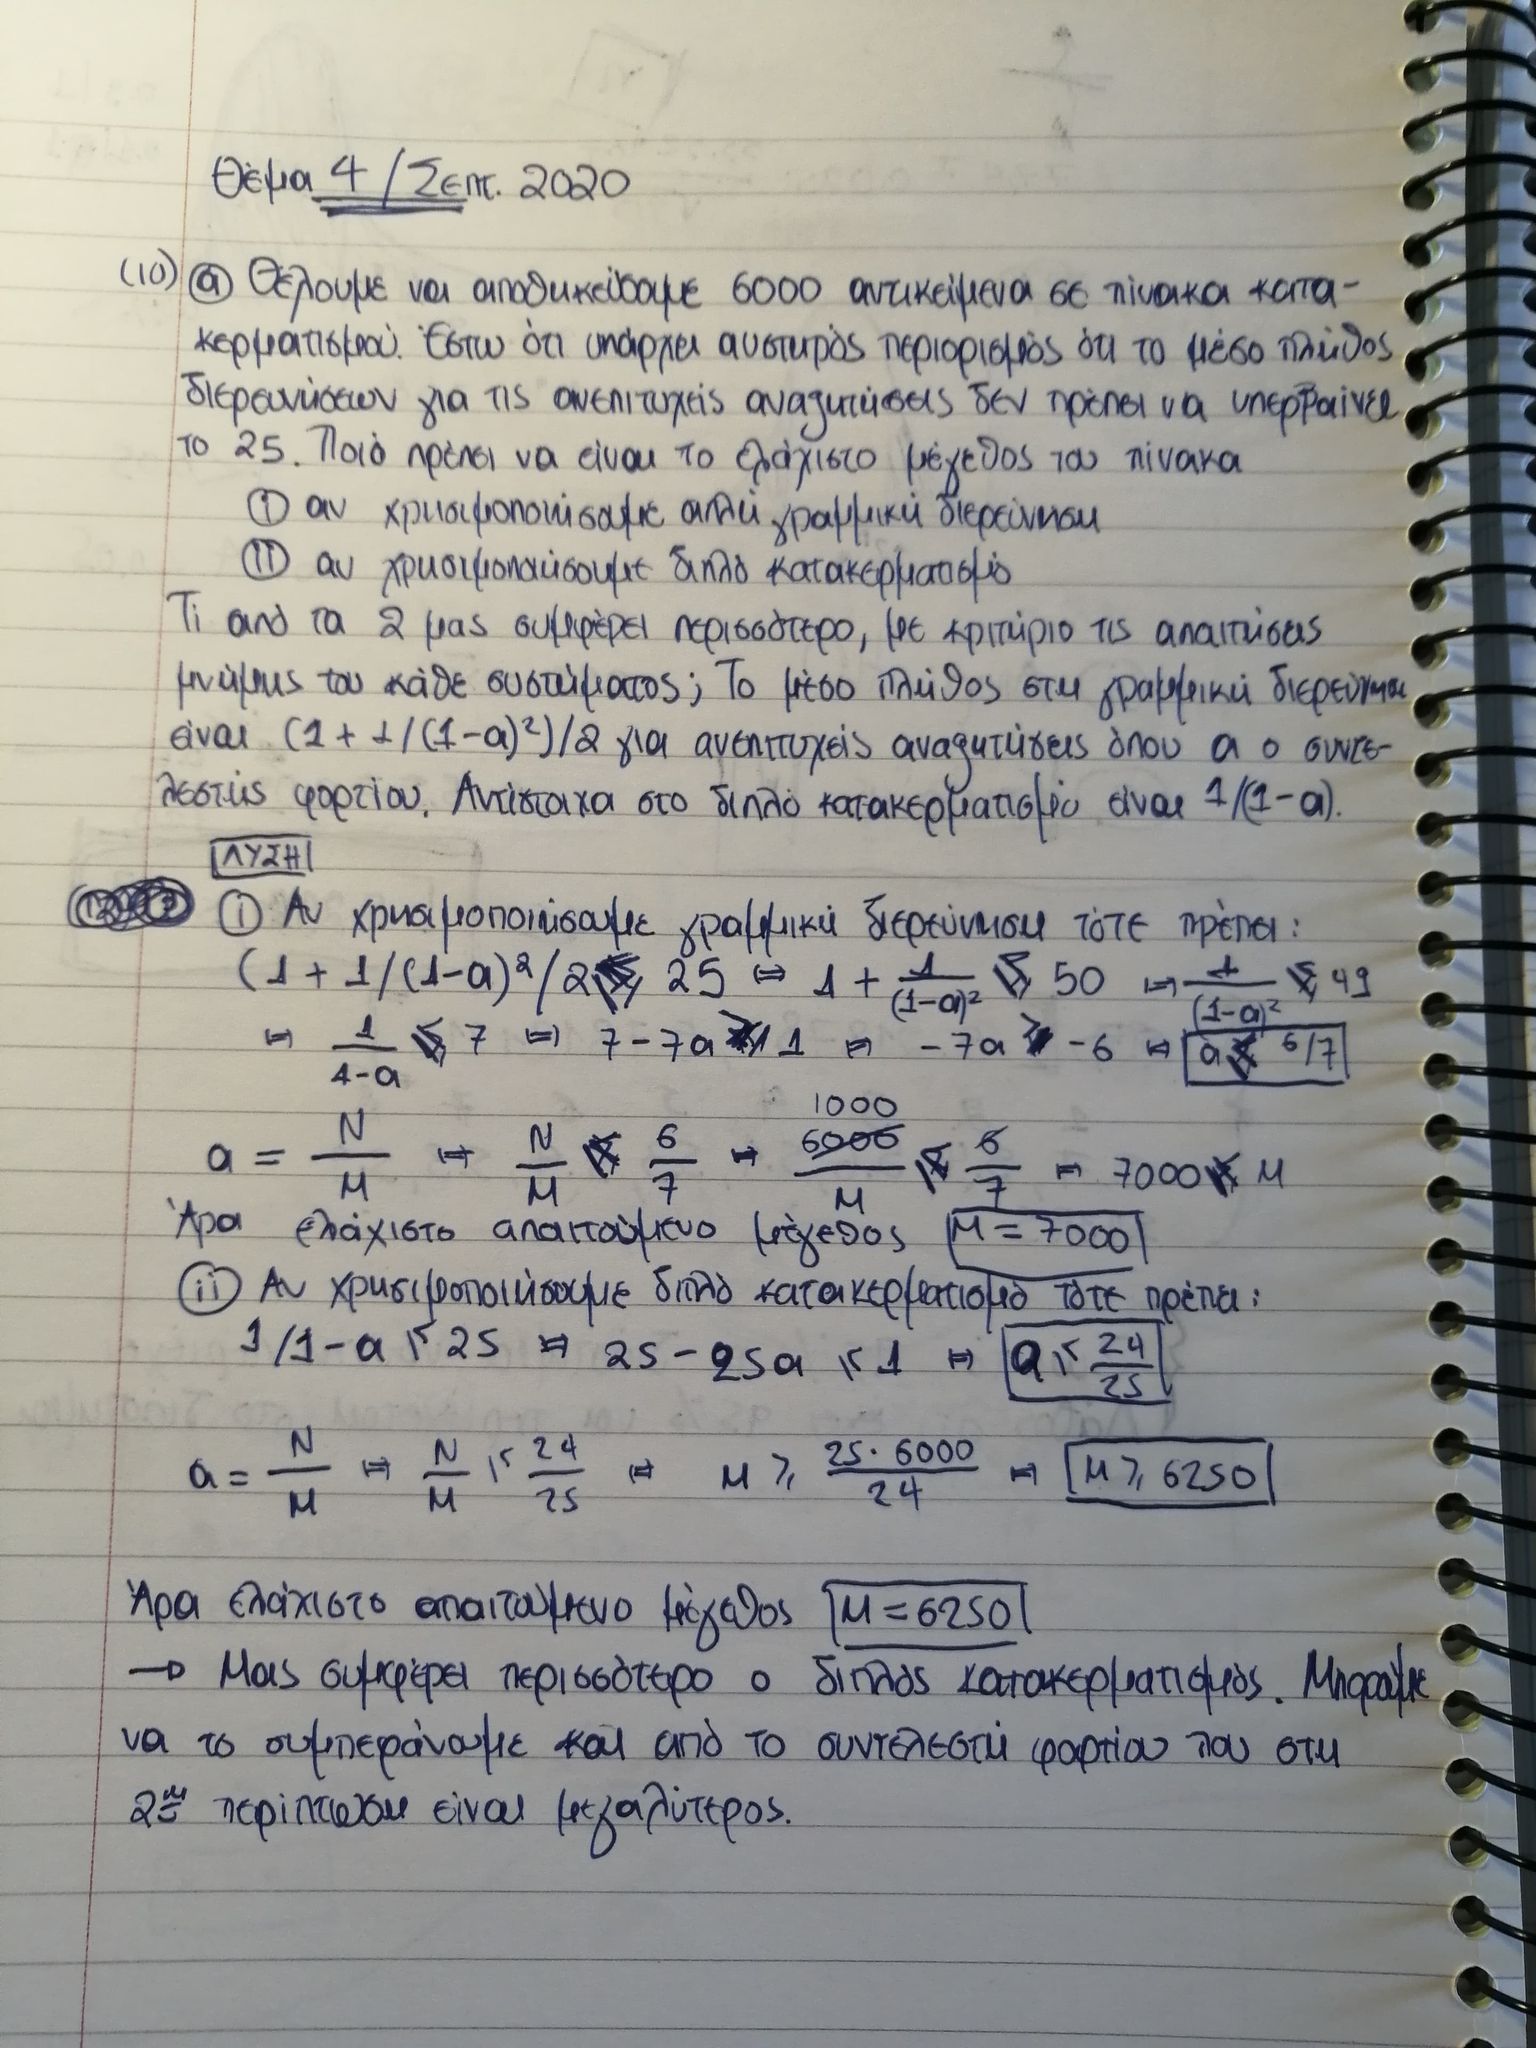 Θέμα 4 / Σεπτ. 2020
(10) (α) Θέλουμε να αποθηκεύσουμε 6000 αντικείμενα σε πίνακα κατα-
κερματισμού. Έστω ότι υπάρχει αυστηρός περιορισμός ότι το μέσο πλήθος
διερευνήσεων για τις ανεπιτυχείς αναζητήσεις δεν πρέπει να υπερβαίνει
το 25. Ποιό πρέπει να είναι το ελάχιστο μέγεθος του πίνακα
(i) αν χρησιμοποιήσουμε απλή γραμμική διερεύνηση
(ii) αν χρησιμοποιήσουμε διπλό κατακερματισμό
Τι από τα 2 μας συμφέρει περισσότερο, με κριτήριο τις απαιτήσεις
μνήμης του κάθε συστήματος; Το μέσο πλήθος στη γραμμική διερεύνηση
είναι (1 + 1/(1-a)²)/2 για ανεπιτυχείς αναζητήσεις όπου a ο συντε-
λεστής φορτίου. Αντίστοιχα στο διπλό κατακερματισμό είναι 1/(1-a).
ΛΥΣΗ
(i) Αν χρησιμοποιήσουμε γραμμική διερεύνηση τότε πρέπει:
(1 + 1/(1-a)²/2 ≤ 25 ⇔ 1 + 1/(1-a)² ≤ 50 ⇔ 1/(1-a)² ≤ 49
⇔ 1/1-a ≤ 7 ⇔ 7-7a ≥ 1 ⇔ -7a ≥ -6 ⇔ a ≤ 6/7
a = N/M ⇔ N/M ≤ 6/7 ⇔ 1000 6000/M ≤ 6/7 ⇔ 7000 ≤ M
Άρα ελάχιστο απαιτούμενο μέγεθος M = 7000
(ii) Αν χρησιμοποιήσουμε διπλό κατακερματισμό τότε πρέπει:
1/1-a ≤ 25 ⇔ 25-25a ≤ 1 ⇔ a ≤ 24/25
a = N/M ⇔ N/M ≤ 24/25 ⇔ M ≥ 25·6000/24 ⇔ M ≥ 6250
Άρα ελάχιστο απαιτούμενο μέγεθος M = 6250
→ Μας συμφέρει περισσότερο ο διπλός κατακερματισμός. Μπορούμε
να το συμπεράνουμε και από το συντελεστή φορτίου που στη
2η περίπτωση είναι μεγαλύτερος.